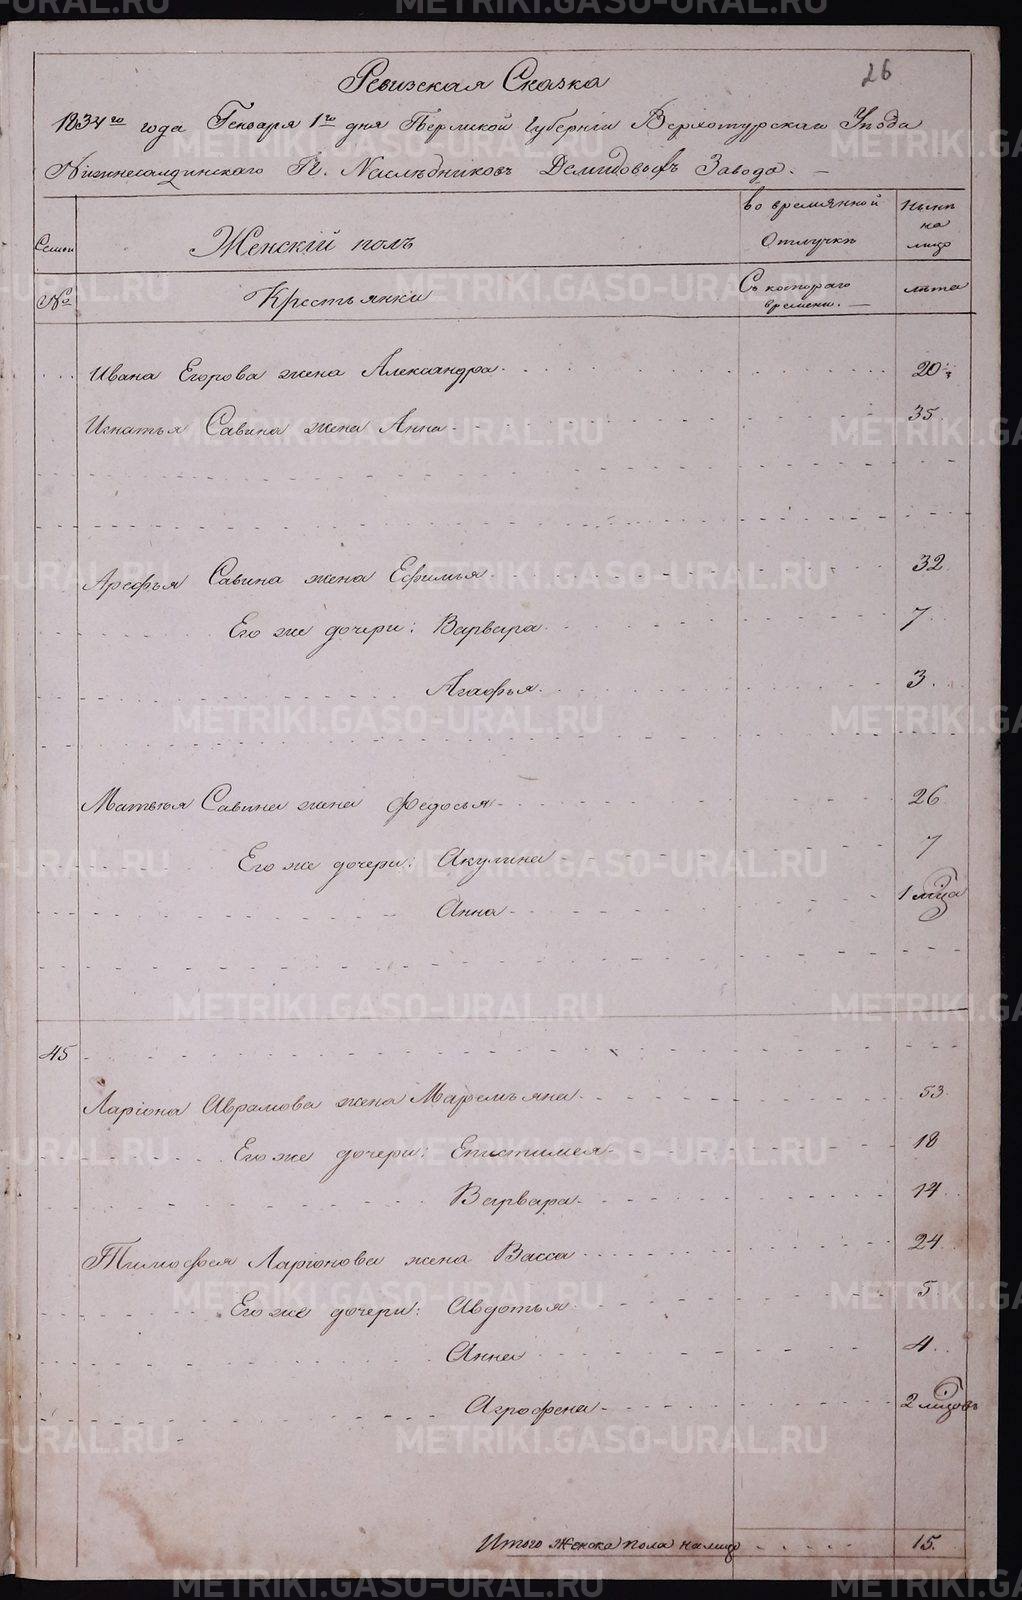 26
Ревизская Сказка
1834го года Генваря 1го дня Пермской Губернiи Верхотурскаго Уезда
Нижнесалдинскаго Гг. Наследниковъ Демидовыхъ Завода.
Семьи
Женскiй полъ
во времянной Отлучке
Ныне на лицо
№
Крестьянки
Съ котораго времени.
лета
Ивана Егорова жена Александра 20
Игнатья Савина жена Анна 35
Арефья Савина жена Ефимья 32
Его же дочери: Варвара 7
Агафья 3
Матвея Савина жена Федосья 26
Его же дочери: Акулина 7
Анна 1 мца
45
Ларiона Аврамова жена Маремъяна 53
Его же дочери: Епистимея 18
Варвара 14
Тимофея Ларiонова жена Васса 24
Его же дочери: Авдотья 5
Анна 4
Агрофена 2 мцовъ
Итого Женска пола на лицо 15.
METRIKI.GASO-URAL.RU